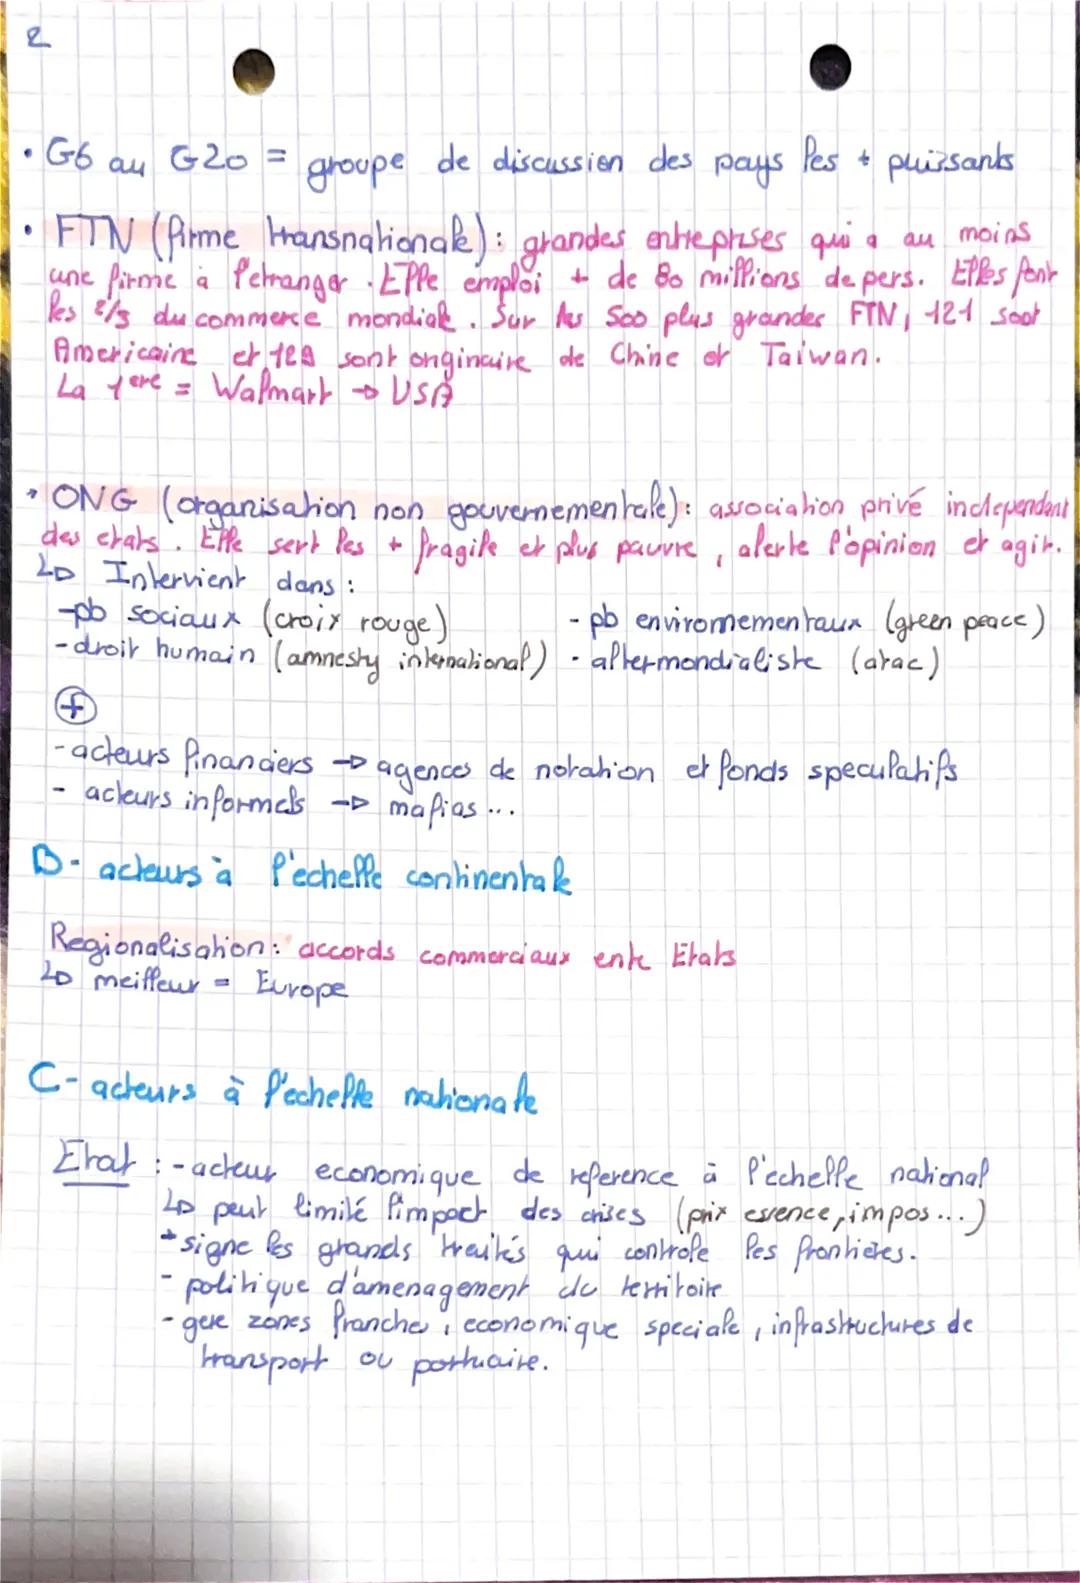 2
• G6 au G20 = groupe de discussion des pays les + puissants
• FTN (firme transnationale) : grandes entreprises qui a au moins
une firme à l'etranger. Elle emploi + de 80 millions de pers. Elles font
les 2/3 du commerce mondiale. Sur les 500 plus grandes FTN, 121 sont
Americaine et 129 sont originaire de Chine et Taiwan.
La 1ere = Walmart → USA
• ONG (organisation non gouvernementale) : association privé independant
des etats. Elle sert les + fragile et plus pauvre, alerte l'opinion et agir.
↳ Intervient dans :
- pb sociaux (croix rouge) - pb environnementaux (green peace)
- droit humain (amnesty international) - altermondialiste (atac)
+
- acteurs financiers → agences de notation et fonds speculatifs
- acteurs informels → mafias ...
B- acteurs à l'echelle continentale
Regionalisation : accords commerciaux entre Etats
↳ meilleur = Europe
C- acteurs à l'echelle nationale
Etat : - acteur economique de reference à l'echelle national
↳ peut limité l'impact des crises (prix essence, impos...)
- signe les grands traités qui controle les frontières.
- politique d'amenagement du territoire
- gere zones franche, economique speciale, infrastructures de
transport ou portuaire.